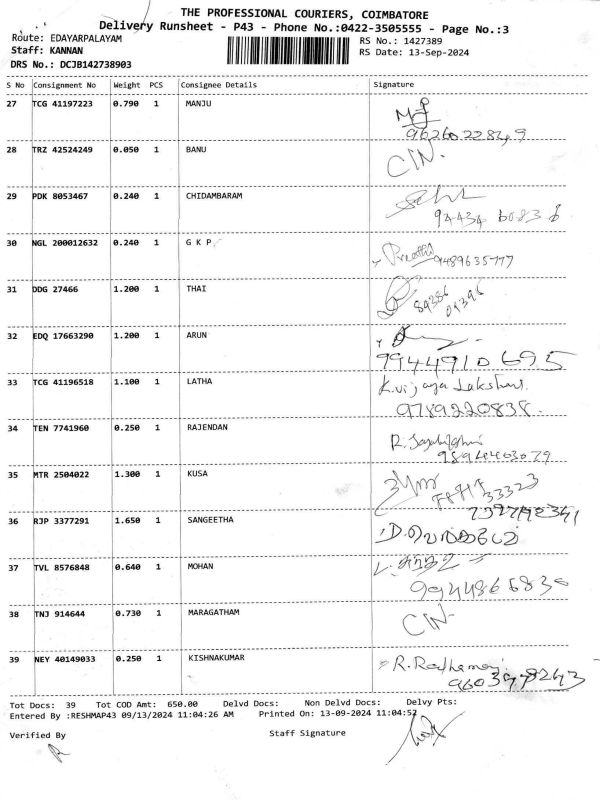 THE PROFESSIONAL COURIERS, COIMBATORE
Delivery Runsheet - P43 - Phone No.:0422-3505555 - Page No.:3
Route: EDAYARPALAYAM
RS No.: 1427389
Staff: KANNAN
RS Date: 13-Sep-2024
DRS No.: DCJB142738903
S No Consignment No Weight PCS Consignee Details Signature
27 TCG 41197223 0.790 1 MANJU
28 TRZ 42524249 0.050 1 BANU
CIN.
29 PDK 8053467 0.240 1 CHIDAMBARAM
30 NGL 200012632 0.240 1 G K P
9489635777
31 DDG 27466 1.200 1 THAI
32 EDQ 17663290 1.200 1 ARUN
9944910695
33 TCG 41196518 1.100 1 LATHA
K.vijaya Lakshmi.
9789220838.
34 TEN 7741960 0.250 1 RAJENDAN
35 MTR 2504022 1.300 1 KUSA
36 RJP 3377291 1.650 1 SANGEETHA
37 TVL 8576848 0.640 1 MOHAN
38 TNJ 914644 0.730 1 MARAGATHAM
CIN.
39 NEY 40149033 0.250 1 KISHNAKUMAR
Tot Docs: 39 Tot COD Amt: 650.00 Delvd Docs: Non Delvd Docs: Delvy Pts:
Entered By :RESHMAP43 09/13/2024 11:04:26 AM Printed On: 13-09-2024 11:04:52
Verified By Staff Signature